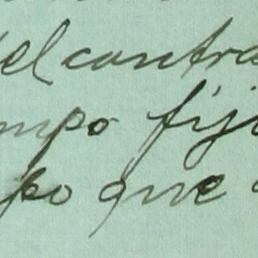 del contra
mpo fij
po que